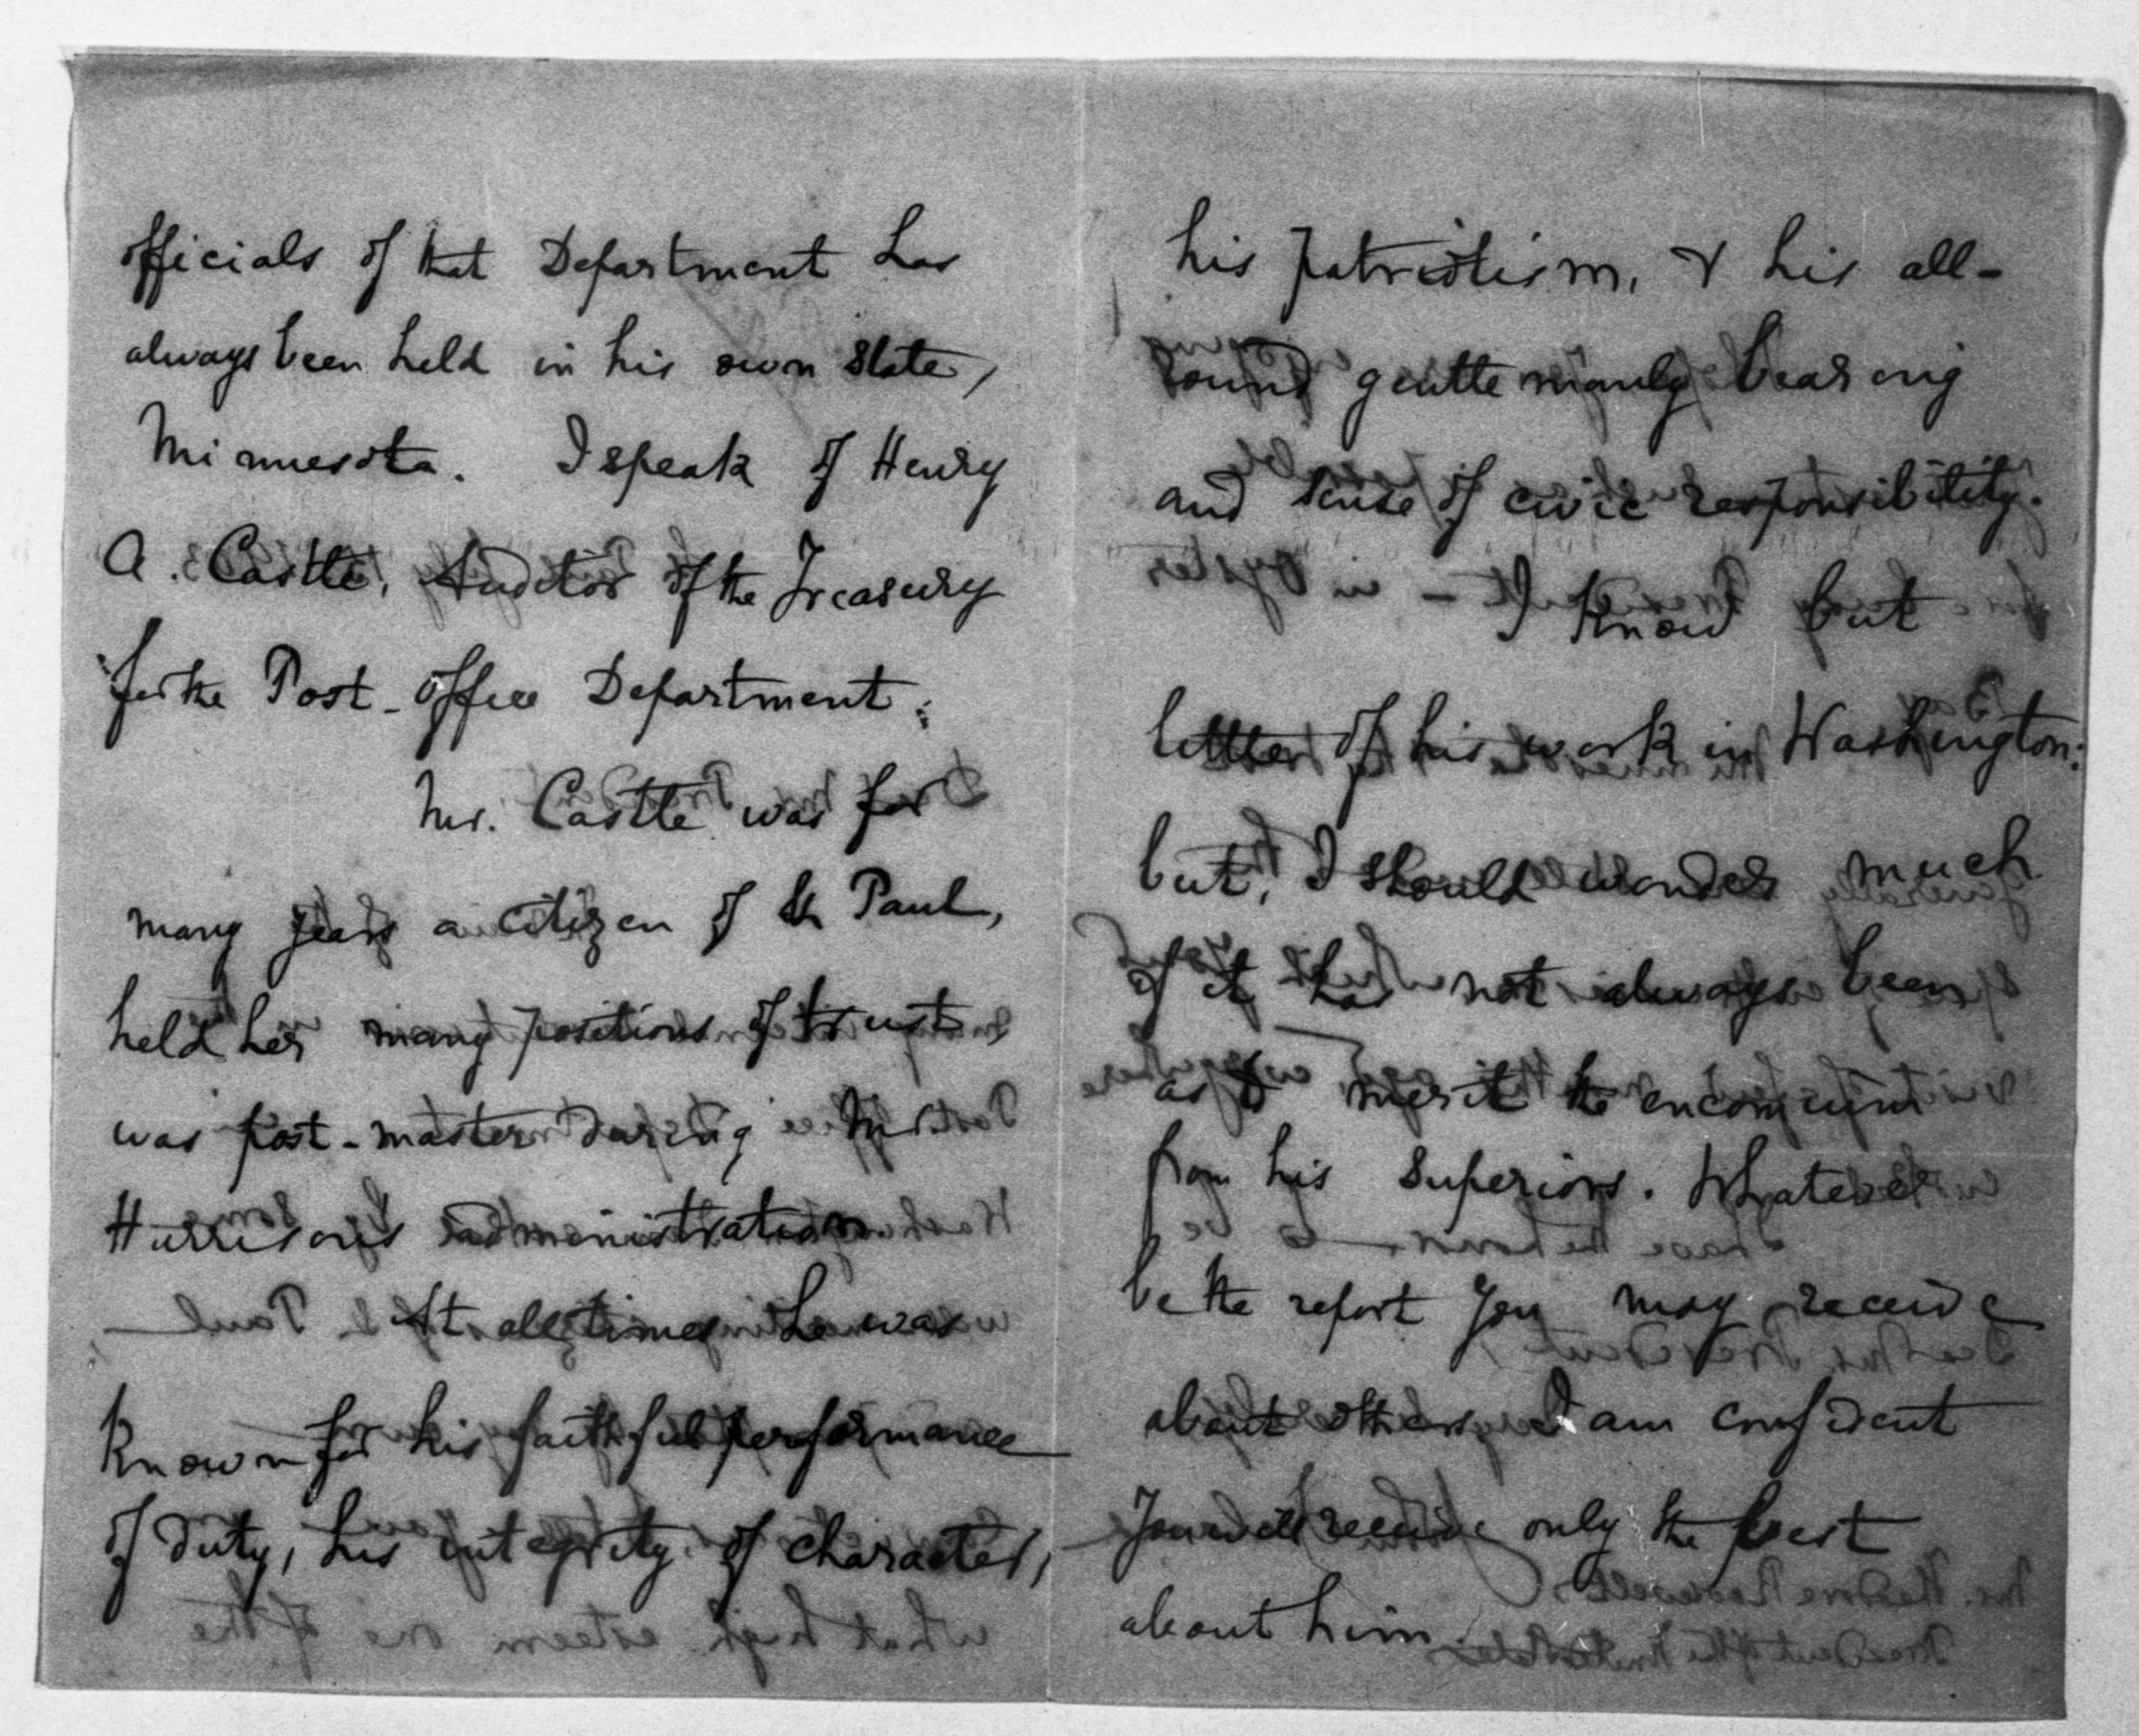 officials of that Department has
always been held in his own State,
Minnesota. I speak of Henry
A. Castle, Auditor of the Treasury
for the Post-Office Department.
Mr. Castle was for
many years a citizen of St Paul,
held her many positions of trust,
was post-master during Mr.
Harrison's administration.
At all times he was
known for his faithful performance
of duty, his integrity of character,
his patriotism, & his all-
round gentlemanly bearing
and sense of civic responsibility.
I know but
little of his work in Washington:
but, I should wonder much
if it has not always been
as to merit the encomium
from his superiors. Whatever
be the report you may receive
about others, I am confident
you will receive only the best
about him.